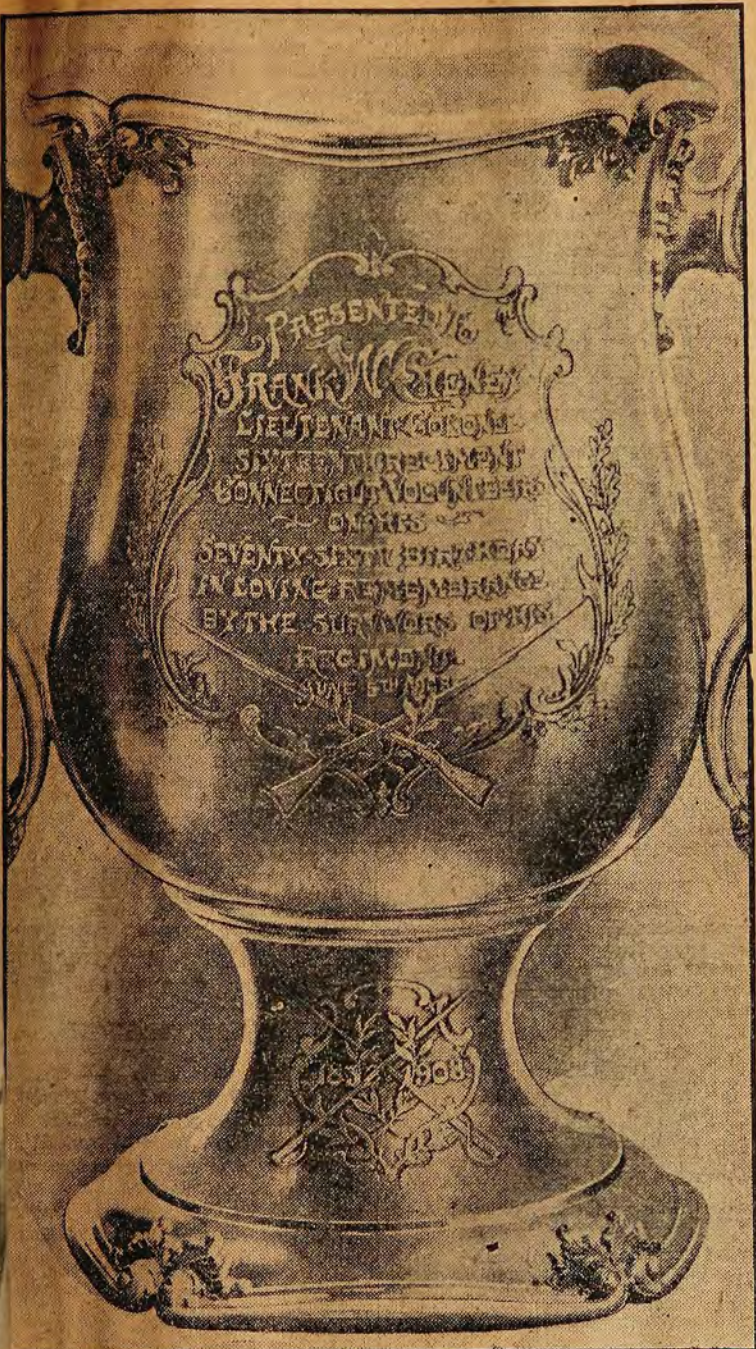 PRESENTED TO
FRANK W. CHENEY
LIEUTENANT COLONEL
SIXTEENTH REGIMENT
CONNECTICUT VOLUNTEERS
ON HIS
SEVENTY-SIXTH BIRTHDAY
IN LOVING REMEMBRANCE
BY THE SURVIVORS OF HIS
REGIMENT
JUNE 5TH 1908
1832 1908